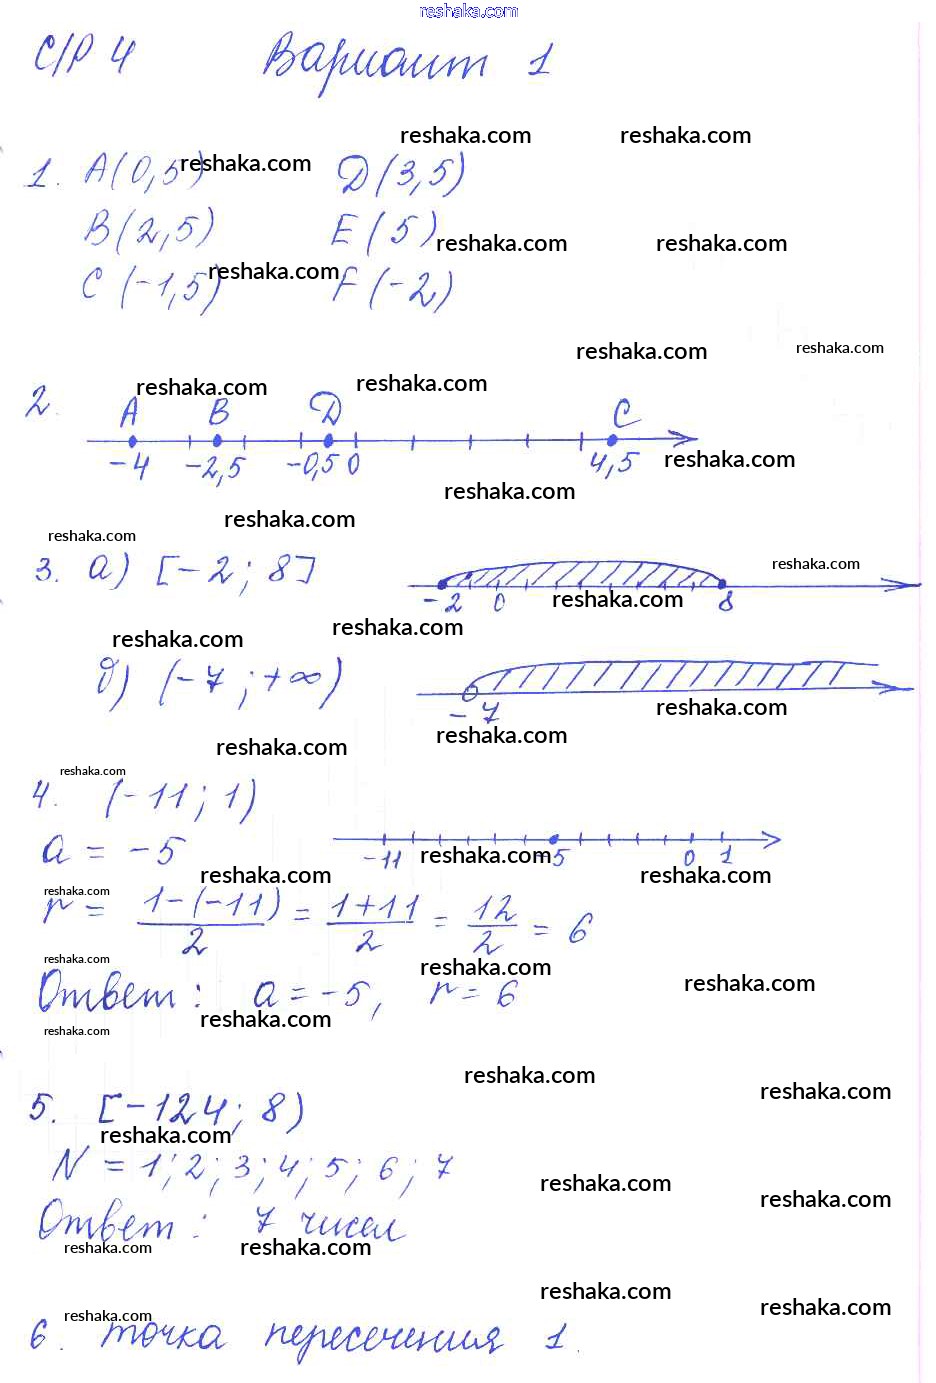 reshaka.com
С/Р 4 Вариант 1
reshaka.com reshaka.com
1. A(0,5) reshaka.com D(3,5)
B(2,5) E(5) reshaka.com reshaka.com
C(-1,5) reshaka.com F(-2)
reshaka.com reshaka.com
2. reshaka.com reshaka.com
A B D C
-4 -2,5 -0,5 0 4,5 reshaka.com
reshaka.com
reshaka.com
reshaka.com
3. а) [-2; 8] reshaka.com
-2 0 reshaka.com 8
reshaka.com reshaka.com
б) (-7; +∞)
-7 reshaka.com
reshaka.com reshaka.com
reshaka.com
4. (-11; 1)
a = -5 -11 reshaka.com -5 0 1
reshaka.com reshaka.com
reshaka.com
r = 1-(-11)/2 = 1+11/2 = 12/2 = 6
reshaka.com reshaka.com
Ответ: a = -5, r = 6 reshaka.com
reshaka.com reshaka.com
reshaka.com reshaka.com
5. [-124; 8)
reshaka.com
N = 1; 2; 3; 4; 5; 6; 7
reshaka.com reshaka.com
Ответ: 7 чисел
reshaka.com reshaka.com
reshaka.com reshaka.com
reshaka.com
6. точка пересечения 1.